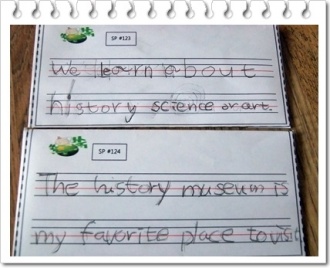 SP #123
We learn about
history science or art.
SP #124
The history museum is
my favorite place to visit